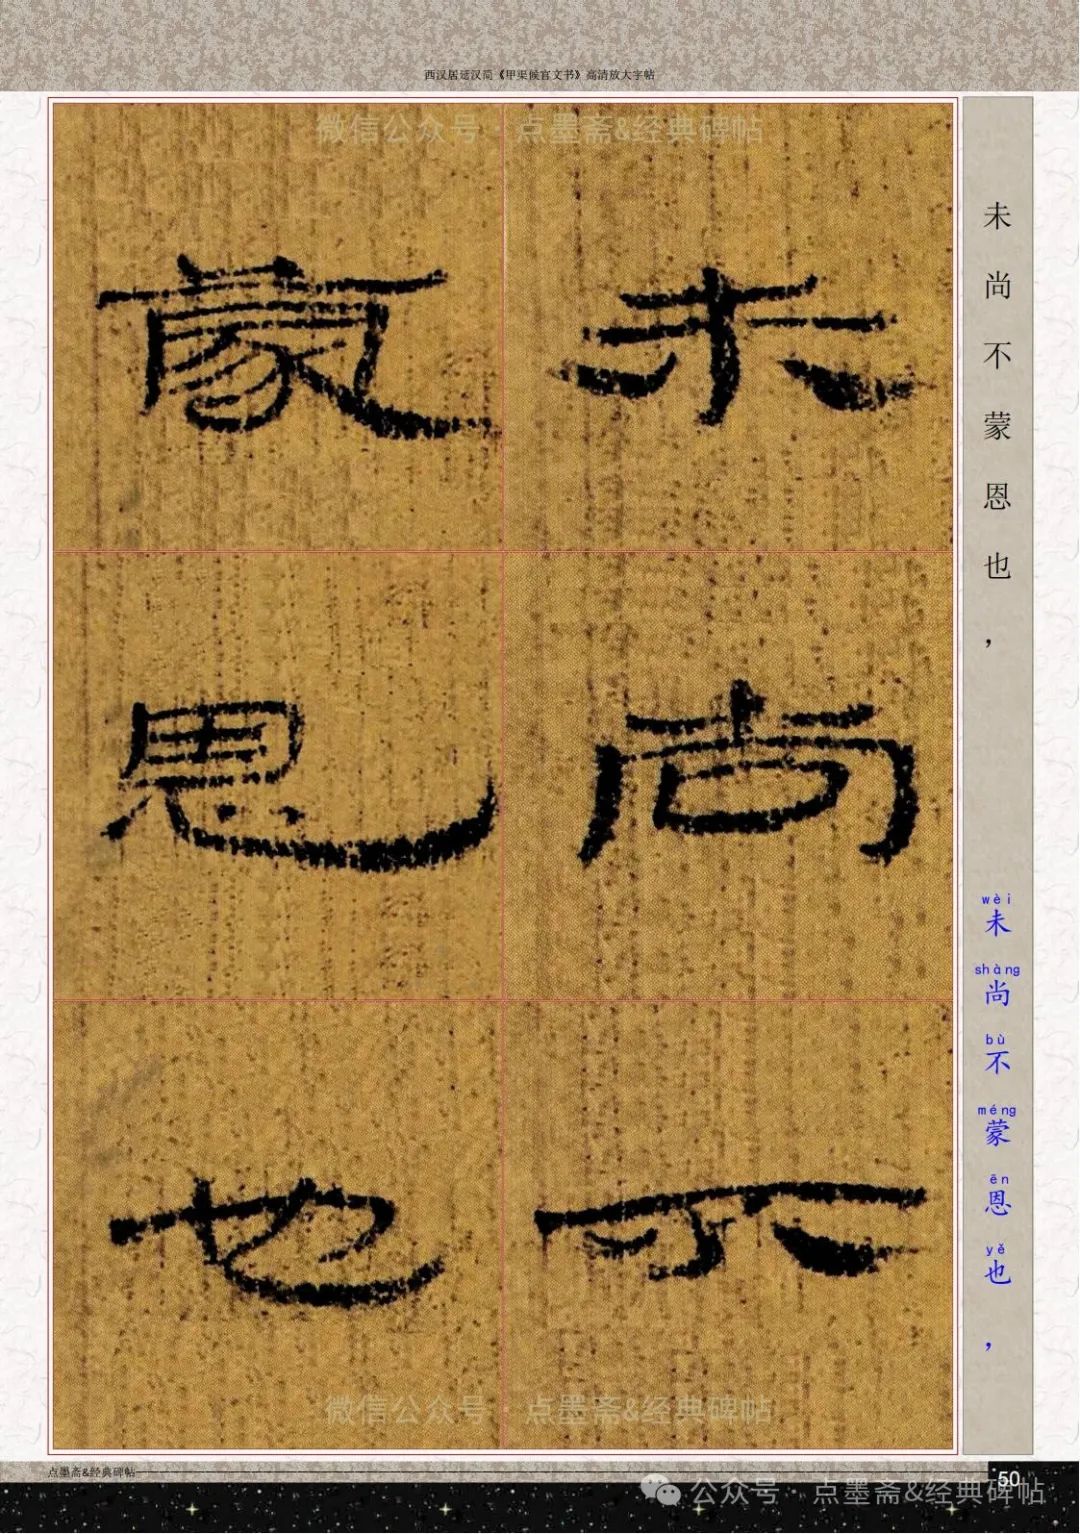 西汉居延汉简《甲渠候官文书》高清放大字帖
微信公众号·点墨斋&经典碑帖
未
尚
不
蒙
恩
也
未尚不蒙恩也，
wèi
未
shàng
尚
bù
不
méng
蒙
ēn
恩
yě
也
，
微信公众号·点墨斋&经典碑帖
点墨斋&经典碑帖
50
公众号·点墨斋&经典碑帖